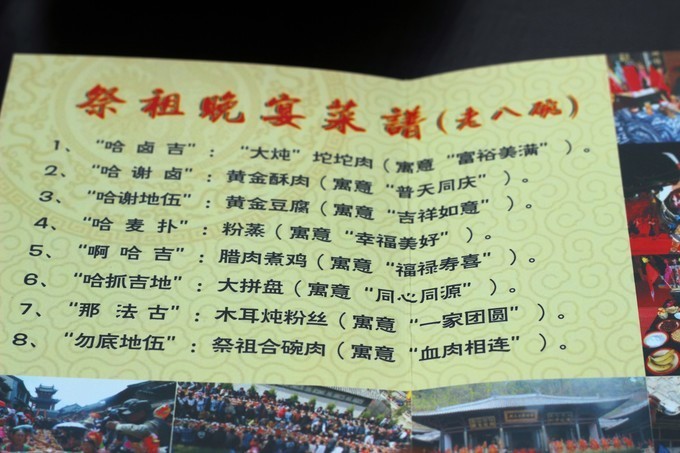 祭祖晚宴菜谱(老八碗)
1、“哈卤吉”：“大炖”坨坨肉（寓意“富裕美满”）。
2、“哈谢卤”：黄金酥肉（寓意“普天同庆”）。
3、“哈谢地伍”：黄金豆腐（寓意“吉祥如意”）。
4、“哈麦扑”：粉蒸（寓意“幸福美好”）。
5、“啊哈吉”：腊肉煮鸡（寓意“福禄寿喜”）。
6、“哈抓吉地”：大拼盘（寓意“同心同源”）。
7、“那法古”：木耳炖粉丝（寓意“一家团圆”）。
8、“勿底地伍”：祭祖合碗肉（寓意“血肉相连”）。